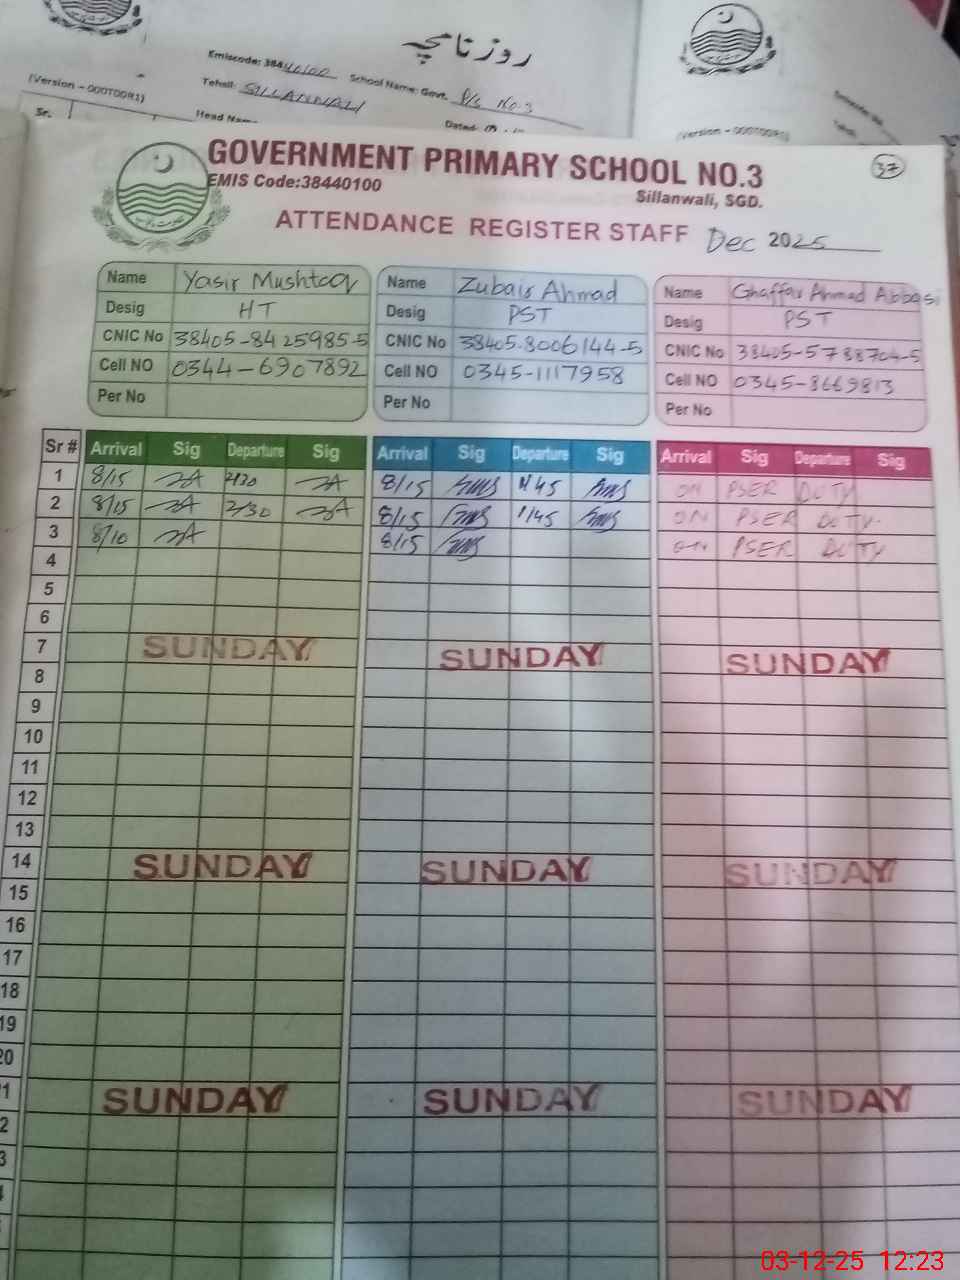 روزنامچہ
Emiscode: 38440100 School Name: Govt. P/S No.3
(Version - 000T00R1)
Tehsil: SILLANWALI
Sr.
Head Name
Dated:
(Version - 000T00R1)
GOVERNMENT PRIMARY SCHOOL NO.3
37
EMIS Code:38440100
Sillanwali, SGD.
ATTENDANCE REGISTER STAFF Dec 2025
Name Yasir Mushtaq Name Zubair Ahmad Name Ghaffar Ahmad Abbasi
Desig HT Desig PST Desig PST
CNIC No 38405-8425985-5 CNIC No 38405-8006144-5 CNIC No 38405-5788704-5
Cell NO 0344-6907892 Cell NO 0345-1117958 Cell NO 0345-8669813
Per No Per No Per No
Sr # Arrival Sig Departure Sig Arrival Sig Departure Sig Arrival Sig Departure Sig
1 8/15 2/30 8/15 1/45 ON PSER DUTY
2 8/15 2/30 8/15 1/45 ON PSER DUTY.
3 8/10 8/15 on PSER DUTY
4
5
6
7 SUNDAY SUNDAY SUNDAY
8
9
10
11
12
13
14 SUNDAY SUNDAY SUNDAY
15
16
17
18
19
20
1 SUNDAY SUNDAY SUNDAY
2
3
4
03-12-25 12:23